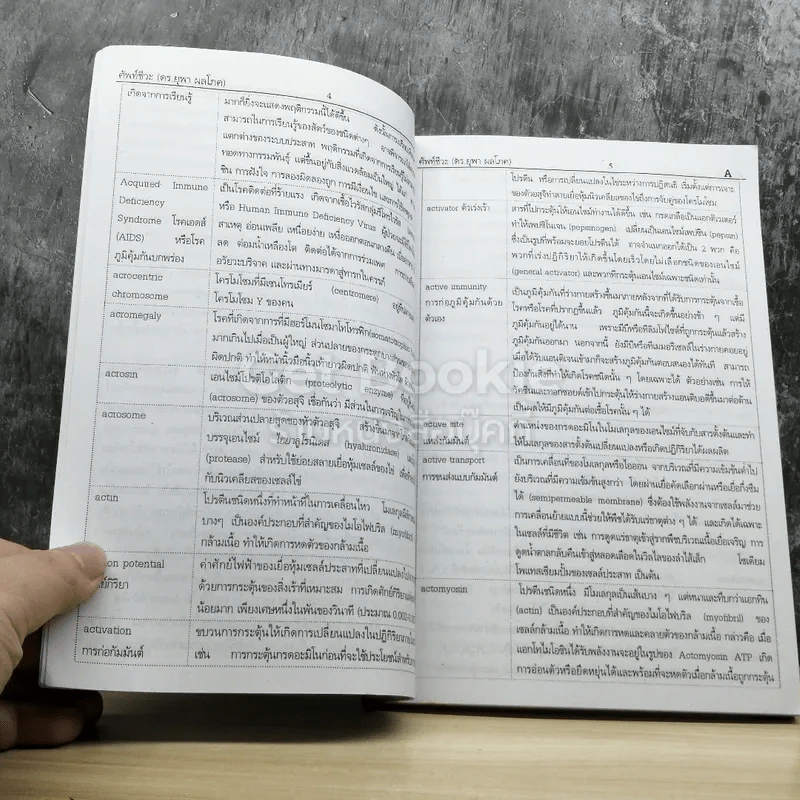 ศัพท์ชีวะ (ดร.ยุพา ผลโภค)
4
เกิดจากการเรียนรู้
มากก็ยิ่งจะแสดงพฤติกรรมนี้ได้ดีขึ้น
สามารถในการเรียนรู้ของสัตว์ของชนิดต่างๆ
แตกต่างของระบบประสาท พฤติกรรมที่เกิดจากการเรียนรู้
ทอดทางกรรมพันธุ์ แต่ขึ้นอยู่กับสิ่งแวดล้อมเป็นใหญ่ ได้แก่
ชิน การฝังใจ การลองผิดลองถูก การมีเงื่อนไข
Acquired Immune
Deficiency
Syndrome โรคเอดส์
(AIDS) หรือโรค
ภูมิคุ้มกันบกพร่อง
เป็นโรคติดต่อที่ร้ายแรง เกิดจากเชื้อไวรัสกลุ่มรีโทรไวรัส
หรือ Human Immune Deficiency Virus
สาเหตุ อ่อนเพลีย เหนื่อยง่าย
ลด ต่อมน้ำเหลืองโต ติดต่อได้จากการร่วมเพศ
อวัยวะบริจาค และผ่านทางมารดาสู่ทารกในครรภ์
acrocentric
chromosome
โครโมโซมที่มีเซนโทรเมียร์ (centromere)
โครโมโซม Y ของคน
acromegaly
โรคที่เกิดจากการที่มีฮอร์โมนโซมาโทโทรฟิน
มากเกินไปเมื่อเป็นผู้ใหญ่
ผิดปกติ ทำให้หน้านิ้วมือนิ้วเท้ายาวผิดปกติ
acrosin
เอนไซม์โปรตีโอไลติก (proteolytic enzyme)
(acrosome) ของตัวอสุจิ เชื่อกันว่า
acrosome
บริเวณส่วนปลายสุดของหัวตัวอสุจิ
บรรจุเอนไซม์ ไฮยาลูโรนิเดส (hyaluronidase)
(protease) สำหรับใช้ย่อยสลายเยื่อหุ้มเซลล์ของไข่
กับนิวเคลียสของเซลล์ไข่
actin
โปรตีนชนิดหนึ่งที่ทำหน้าที่ในการเคลื่อนไหว
บางๆ เป็นองค์ประกอบที่สำคัญของไมโอไฟบริล
กล้ามเนื้อ ทำให้เกิดการหดตัวของกล้ามเนื้อ
on potential
ค่าศักย์ไฟฟ้าของเยื่อหุ้มเซลล์ประสาทที่เปลี่ยนแปลงไป
ด้วยการกระตุ้นของสิ่งเร้าที่เหมาะสม
น้อยมาก เพียงเศษหนึ่งในพันของวินาที
activation
การก่อกัมมันต์
ขบวนการกระตุ้นให้เกิดการเปลี่ยนแปลงในปฏิกิริยา
เช่น การกระตุ้นกรดอะมิโนก่อนที่จะใช้ประโยชน์
ศัพท์ชีวะ (ดร.ยุพา ผลโภค)
5
A
โปรตีน หรือการเปลี่ยนแปลงในไข่ระหว่างการปฏิสนธิ เริ่มตั้งแต่การเจาะ
ของตัวอสุจิทำลายเยื่อหุ้มนิวเคลียสของไข่ถึงการจับคู่ของโครโมโซม
activator ตัวเร่งเร้า
สารที่ไปกระตุ้นให้เอนไซม์ทำงานได้ดีขึ้น เช่น กรดเกลือเป็นแอกติเวเตอร์
ทำให้เพปซิโนเจน (pepsinogen) เปลี่ยนเป็นเอนไซม์เพปซิน (pepsin)
ซึ่งเป็นรูปที่พร้อมจะย่อยโปรตีนได้ อาจจำแนกออกได้เป็น 2 พวก คือ
พวกที่เร่งปฏิกิริยาให้เกิดขึ้นโดยเร็วโดยไม่เลือกชนิดของเอนไซม์
(general activator) และพวกที่กระตุ้นเอนไซม์เฉพาะชนิดเท่านั้น
active immunity
การก่อภูมิคุ้มกันด้วย
ตัวเอง
เป็นภูมิคุ้มกันที่ร่างกายสร้างขึ้นมาภายหลังจากที่ได้รับการกระตุ้นจากเชื้อ
โรคหรือโรคที่ปรากฏขึ้นแล้ว ภูมิคุ้มกันนี้จะเกิดขึ้นอย่างช้า ๆ แต่มี
ภูมิคุ้มกันอยู่ได้นาน เพราะมีบีหรือทีลิมโฟไซต์ที่ถูกกระตุ้นแล้วสร้าง
ภูมิคุ้มกันออกมา นอกจากนี้ ยังมีบีหรือทีเมมอรีเซลล์ในร่างกายคอยอยู่
เมื่อได้รับแอนติเจนเข้ามาก็จะสร้างภูมิคุ้มกันตอบสนองได้ทันที สามารถ
ป้องกันสิ่งที่ทำให้เกิดโรคชนิดนั้น ๆ โดยเฉพาะได้ ตัวอย่างเช่น การให้
วัคซีนและทอกซอยด์เข้าไปกระตุ้นให้ร่างกายสร้างแอนติบอดีขึ้นมาต่อต้าน
เป็นผลให้มีภูมิคุ้มกันต่อเชื้อโรคนั้น ๆ ได้
active site
แหล่งกัมมันต์
ตำแหน่งของกรดอะมิโนในโมเลกุลของเอนไซม์ที่จับกับสารตั้งต้นและทำ
ให้โมเลกุลของสารตั้งต้นเปลี่ยนแปลงหรือเกิดปฏิกิริยาได้ผลผลิต
active transport
การขนส่งแบบกัมมันต์
เป็นการเคลื่อนที่ของโมเลกุลหรือไอออน จากบริเวณที่มีความเข้มข้นต่ำไป
ยังบริเวณที่มีความเข้มข้นสูงกว่า โดยผ่านเยื่อคัดเลือกผ่านหรือเยื่อกึ่งซึม
ได้ (semipermeable membrane) ซึ่งต้องใช้พลังงานจากเซลล์มาช่วย
การเคลื่อนย้ายแบบนี้ช่วยให้พืชได้รับแร่ธาตุต่าง ๆ ได้ และเกิดได้เฉพาะ
ในเซลล์ที่มีชีวิต เช่น การดูดแร่ธาตุเข้าสู่รากพืชบริเวณเนื้อเยื่อเจริญ การ
ดูดน้ำตาลกลับคืนเข้าสู่หลอดเลือดในวิลไลของลำไส้เล็ก โซเดียม
โพแทสเซียมปั๊มของเซลล์ประสาท เป็นต้น
actomyosin
โปรตีนชนิดหนึ่ง มีโมเลกุลเป็นเส้นบาง ๆ แต่หนาและทึบกว่าแอกทิน
(actin) เป็นองค์ประกอบที่สำคัญของไมโอไฟบริล (myofibril) ของ
เซลล์กล้ามเนื้อ ทำให้เกิดการหดและคลายตัวของกล้ามเนื้อ กล่าวคือ เมื่อ
แอกโทไมโอซินได้รับพลังงานจะอยู่ในรูปของ Actomyosin ATP เกิด
การอ่อนตัวหรือยืดหยุ่นได้และพร้อมที่จะหดตัวเมื่อกล้ามเนื้อถูกกระตุ้น